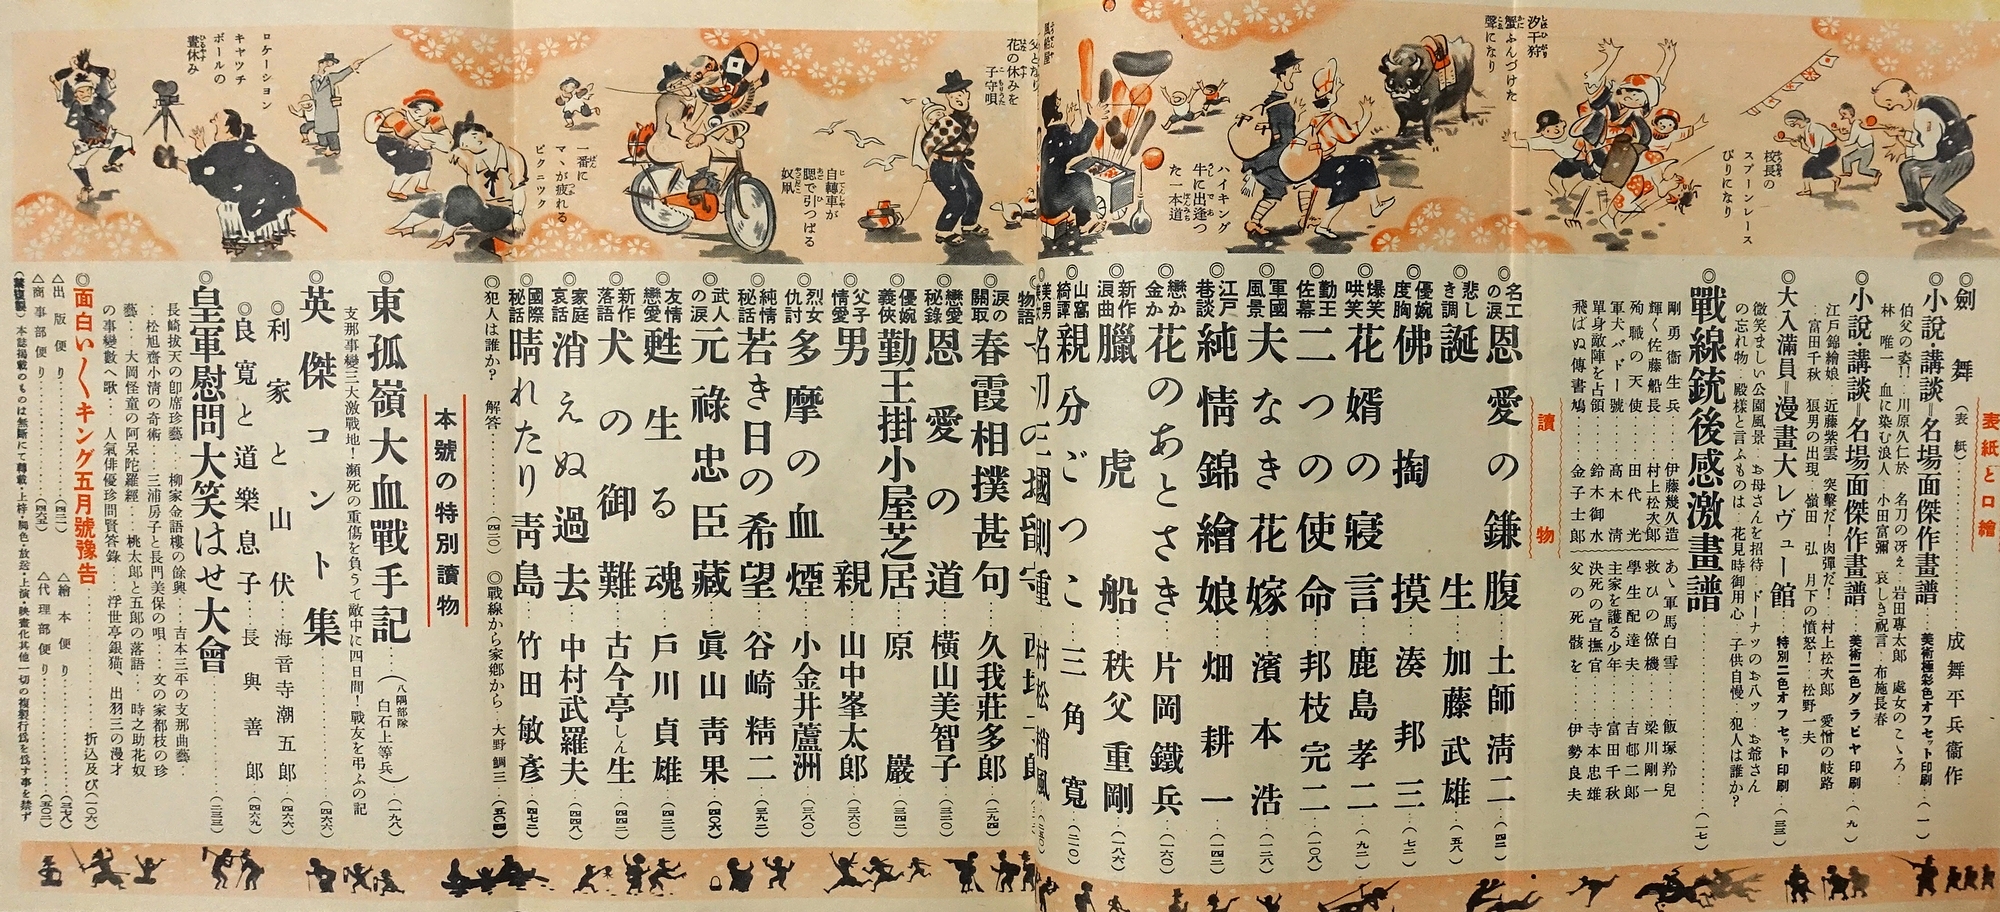 汐干狩
蟹ふんづけた
聲になり
校長の
スプーンレース
びりになり
ハイキング
牛に出逢つ
た一本道
花の休みを
子守唄
自轉車が
腮で引つぱる
奴凧
一番に
マヽが疲れる
ピクニツク
ロケーシヨン
キヤツチ
ボールの
晝休み
表紙と口繪
◎劍舞(表紙)……成舞平兵衞作
◎小説・講談=名場面傑作畫譜…美術極彩色オフセツト印刷…(一)
伯父の姿!!…川原久仁於 名刀の冴え…岩田專太郎 處女のこゝろ…
林 唯一 血に染む浪人…小田富彌 哀しき祝言…布施長春
◎小説・講談=名場面傑作畫譜…美術二色グラビヤ印刷…(九)
江戸錦繪娘…近藤紫雲 突撃だ!肉彈だ!…村上松次郎 愛憎の岐路
…富田千秋 狠男の出現…嶺田 弘 月下の憤怒!…松野一夫
◎大入滿員=漫畫大レヴュー館…特別二色オフセツト印刷…(三三)
微笑ましい公園風景…お母さんを招待…ドーナッツのお八ッ…お爺さん
の忘れ物…殿樣と言ふものは…花見時御用心…子供自慢…犯人は誰か?
◎戰線銃後感激畫譜……(一七)
剛勇衞生兵……伊藤幾久造
輝く佐藤船長……村上松次郎
殉職の天使……田代 光
軍犬バドー號……高木 清
單身敵陣を占領……鈴木御水
飛ばぬ傳書鳩……金子士郎
あゝ軍馬白雪……飯塚羚兒
救ひの僚機……梁川剛一
學生配達夫……吉邨二郎
主家を護る少年……富田千秋
決死の宣撫官……寺本忠雄
父の死骸を……伊勢良夫
讀物
◎名工の涙 恩愛の鎌腹……土師淸二…(四二)
◎悲し き調 誕生……加藤武雄…(五八)
◎優婉度胸 佛掏摸……湊邦三…(七二)
◎爆笑哄笑 花婿の寢言……鹿島孝二…(九二)
◎勤王佐幕 二つの使命……邦枝完二…(一〇八)
◎軍國風景 夫なき花嫁……濱本浩…(一二八)
◎江戸巷談 純情錦繪娘……畑耕一…(一四二)
◎戀か金か 花のあとさき……片岡鐵兵…(一六〇)
◎新作浪曲 臘虎船……秩父重剛…(一八六)
◎山窩綺譚 親分ごつこ……三角寛…(二一〇)
村松梢風
◎涙の關取 春霞相撲甚句……久我莊多郎…(二九四)
◎戀愛秘錄 恩愛の道……橫山美智子…(三三〇)
◎優婉義俠 勤王掛小屋芝居……原巖…(三四二)
◎父子情愛 男親……山中峯太郎…(三六〇)
◎烈女仇討 多摩の血煙……小金井蘆洲…(三八〇)
◎純情秘話 若き日の希望……谷崎精二…(三九二)
◎武人の涙 元祿忠臣藏……眞山靑果…(四〇六)
◎友情戀愛 甦生る魂……戶川貞雄…(四二二)
◎新作落語 犬の御難……古今亭しん生…(四四二)
◎家庭哀話 消えぬ過去……中村武羅夫…(四四八)
◎國際秘話 晴れたり靑島……竹田敏彥…(四七二)
◎犯人は誰か? 解答……(四二〇) ◎戰線から家鄉から…大野鯛三…(五〇四)
本號の特別讀物
◎東孤嶺大血戰手記……(八隅部隊 白石上等兵)…(一九八)
支那事變三大激戰地!瀕死の重傷を負うて敵中に四日間!戰友を弔ふの記
◎英傑コント集……(四六六)
◎利家と山伏……海音寺潮五郎…(四六六)
◎良寬と道樂息子……長與善郎…(四六九)
◎皇軍慰問大笑はせ大會……(二三三)
長崎拔天の卽席珍藝… 柳家金語樓の餘興…吉本三平の支那曲藝…
…松旭齋小淸の奇術…三浦房子と長門美保の唄…文の家都枝の珍
藝…大岡怪童の阿呆陀羅經…桃太郎と五郎の落語…時之助花奴
の事變數へ歌…人氣俳優珍問賢答錄…浮世亭銀猫、出羽三の漫才
◎面白い〱キング五月號豫告……折込及び(一〇六)
△出版便り……(四二一) △繪本便り……(三七八)
△商事部便り……(四六五) △代理部便り……(五〇三)
(禁複製) 本誌揭載のものは無斷にて轉載・上梓・脚色・放送・上演・映畫化其他一切の複製行爲を爲す事を禁ず